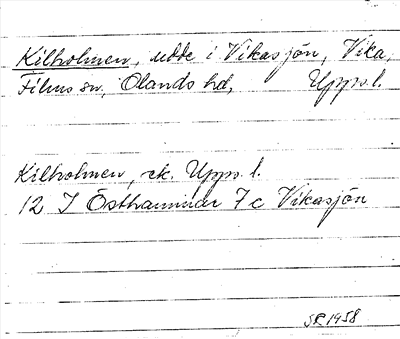 Kilholmen, udde i Vikasjön, Vika,
Films sn, Olands hd, Upps. l.
Kilholmen, ek. Upps. l.
12 I Östhammar 7 c Vikasjön
SR 1958